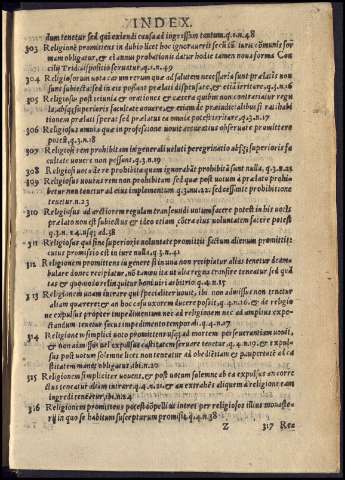 INDEX.
dum tenetur sed quã exiendi causa ad ingressum tantum.q.1.n.48
303 Religionẽ promittens in dubio licet hoc ignorauerit
mam obligatur, & ei annus probationis datur hodie tamen noua forma Con
cilij Trid. dispositio seruatur.q.1.n.49
304 Religiosorum uota circa rerum quæ ad salutem necessaria sunt prælatis non
sunt subiecta sed in eis possunt prælati dispensare, & etiã irritare.q.3.n.16
305 Religiosi post triennium orationes & cætera quibus non contrariatur regu
la, absq; superioris facultate uouere, & etiam de præiudicialibus si ratihabi
tionem prælati sperat sed prælatus ea omnia potest irritare.q.3.n.17
306 Religiosus omnia quæ in professione uouit accuratius obseruare promittere
potest.q.3.n.18
307 Religiosi rem prohibitam in generali ueluti peregrinatio absq; superioris fa
cultate uouere non possunt.q.3.n.19
308 Religiosi uota de re prohibita quam ignorabãt prohibitã sunt nulla.q.3.n.23
309 Religiosus uouens rem non prohibitam sed quæ post uotum à prælato prohi
betur non tenetur ad eius implementum q.3.nu.22. sed cessante prohibitione
tenetur.n.23
310 Religiosus ad arctiorem regulam transeundi uotum facere potest in his uotis
prælato non est subiectus & ideo etiam cõtra eius uoluntatem facere potest
q.3.n.24.usq; ad.38
311 Religiosus qui sine superioris uoluntate promittit factum alterum promittitur
cuius promissio est in iure nulla.q.3.n.41
312 Religionem promittens in genere si in una non recipiatur alias tenetur deam
bulare donec recipiatur, nõ tamen ita ut ultra regna transire teneatur sed quã
tas & quomodo relinquitur boni uiri arbitrio.q.4.n.15
313 Religionem unam intrare qui specialiter uouit, ibi non admissus non tenetur
aliam quærere & an hoc casu uxorem ducere possit.q.4.n.16. & de religio
ne expulsus propter impedimentum nec ad religionem nec ad amplius expe-
ctandum tenetur secus impedimento temporali.q.4.n.17
314 Religionem simplici uoto promittens usq; ad mortem perseuerantiam uouit,
& non admissus uel expulsus castitatem seruare tenetur.q.4.n.19. & expul
sus post uotum solemne licet non teneatur ad obedientiam & paupertatẽ ad ca
stitatem manet obligatur.ibi.n.20
315 Religionem simpliciter uouens, & post uotum solemne ab ea expulsus an rectu
rsus teneatur aliam intrare.q.4.n.21. & an extrahẽs aliquem à religione eam
ingredi teneatur.ibi.n.4
316 Religionem promittens potest cõpelli ut intret per religiosos illius monaste-
rij in quo se habitum suscepturum promisit.q.4.n.38
Z 317 Rea